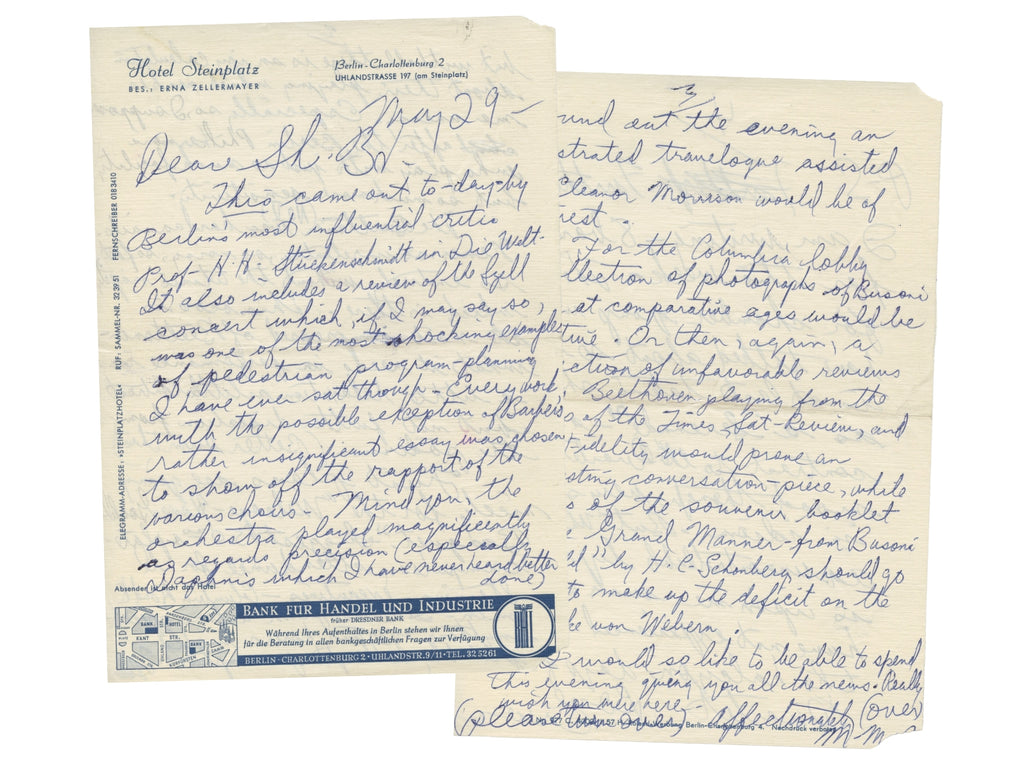 Hotel Steinplatz
BES.: ERNA ZELLERMAYER
Berlin-Charlottenburg 2
UHLANDSTRASSE 197 (am Steinplatz)
May 29-
Dear Sh. B.-
This came out to-day-by
Berlin's most influential critic
Prof- H. H. Stückenschmidt in Die Welt-
It also includes a review of the
concert which, if I may say so,
was one of the most shocking examples
of pedestrian program-planning
I have ever sat through- Every work,
with the possible exception of Barber's
rather insignificant essay was chosen
to show off the rapport of the
various choirs- Mind you, the
orchestra played magnificently
as regards precision (especially
Daphnis which I have never heard better
done)
Absender ist nicht das Hotel
ELEGRAMM-ADRESSE: »STEINPLATZHOTEL« RUF: SAMMEL-NR. 32 39 51 FERNSCHREIBER 0183410
BANK FUR HANDEL UND INDUSTRIE
früher DRESDNER BANK
Während Ihres Aufenthaltes in Berlin stehen wir Ihnen
für die Beratung in allen bankgeschäftlichen Fragen zur Verfügung
BERLIN-CHARLOTTENBURG 2 · UHLANDSTR. 9/11 · TEL. 32 52 61
BANK
HOTEL
KANT STR.
BANK
3/
und out the evening an
strated travelogue assisted
Eleanor Morrison would be of
rest.
For the Columbia lobby
llection of photographs of Busoni
at comparative ages would be
tive. Or then, again, a
ection of unfavorable reviews
Beethoven playing from the
of the Times, Sat-Review, and
Fidelity would prove an
sting conversation-piece, while
s of the souvenir booklet
Grand Manner-from Busoni
" by H. C-Schonberg should go
to make up the deficit on the
von Webern.
I would so like to be able to spend
this evening giving you all the news. Really
wish you were here-
(please turn over) affectionately (over)
Berlin-Charlottenburg 4. Nachdruck verboten